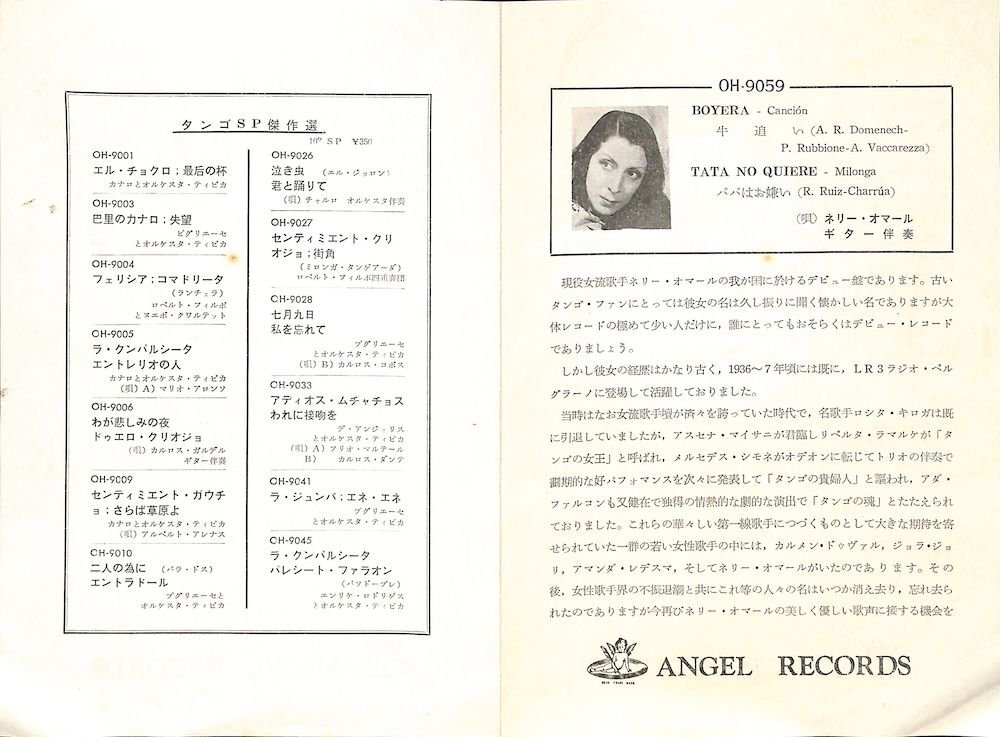 タンゴSP傑作選
10吋 SP ¥350
OH-9001
エル・チョクロ；最后の杯
カナロとオルケスタ・ティピカ
OH-9003
巴里のカナロ；失望
とオルケスタ・ティピカ
OH-9004
フェリシア；コマドリータ
（ランチェラ）
ロベルト・フィルポ
とヌエボ・クワルテット
OH-9005
ラ・クンパルシータ
エントレリオの人
カナロとオルケスタ・ティピカ
（唄）A）マリオ・アロンソ
OH-9006
わが悲しみの夜
ドゥエロ・クリオジョ
（唄）カルロス・ガルデル
ギター伴奏
OH-9009
センティミエント・ガウチ
ョ；さらば草原よ
カナロとオルケスタ・ティピカ
（唄）アルベルト・アレナス
OH-9010
二人の為に （パラ・ドス）
エントラドール
プグリエーセと
オルケスタ・ティピカ
OH-9026
泣き虫 （エル・ジョロン）
君と踊りて
（唄）チャルロ オルケスタ伴奏
OH-9027
センティミエント・クリ
オジョ；街角
（ミロンガ・タンゲアーダ）
ロベルト・フィルポ四重奏団
OH-9028
七月九日
私を忘れて
プグリエーセ
とオルケスタ・ティピカ
（唄）B）カルロス・コボス
OH-9033
アディオス・ムチャチョス
われに接吻を
デ・アンジェリス
とオルケスタ・ティピカ
（唄）A）フリオ・マルテール
B） カルロス・ダンテ
OH-9041
ラ・ジュンバ；エネ・エネ
プグリエーセ
とオルケスタ・ティピカ
OH-9045
ラ・クンパルシータ
パレシート・ファラオン
（パソドーブレ）
エンリケ・ロドリゲス
とオルケスタ・ティピカ
OH-9059
BOYERA - Canción
牛追い (A. R. Domenech-
P. Rubbione-A. Vaccarezza)
TATA NO QUIERE - Milonga
パパはお嫌い (R. Ruiz-Charrúa)
（唄）ネリー・オマール
ギター伴奏
現役女流歌手ネリー・オマールの我が国に於けるデビュー盤であります。古い
タンゴ・ファンにとっては彼女の名は久し振りに聞く懐かしい名でありますが大
体レコードの極めて少い人だけに，誰にとってもおそらくはデビュー・レコード
でありましょう。
しかし彼女の経歴はかなり古く，1936～7年頃には既に，LR3ラジオ・ベル
グラーノに登場して活躍しておりました。
当時はなお女流歌手壇が済々を誇っていた時代で，名歌手ロシタ・キロガは既
に引退していましたが，アスセナ・マイサニが君臨しリベルタ・ラマルケが「タ
ンゴの女王」と呼ばれ，メルセデス・シモネがオデオンに転じてトリオの伴奏で
劃期的な好パフォマンスを次々に発表して「タンゴの貴婦人」と謳われ，アダ・
ファルコンも又健在で独得の情熱的な劇的な演出で「タンゴの魂」とたたえられ
ておりました。これらの華々しい第一線歌手につづくものとして大きな期待を寄
せられていた一群の若い女性歌手の中には，カルメン・ドゥヴァル，ジョラ・ジョ
リ，アマンダ・レデスマ，そしてネリー・オマールがいたのであります。その
後，女性歌手界の不振退潮と共にこれ等の人々の名はいつか消え去り，忘れ去ら
れたのでありますが今再びネリー・オマールの美しく優しい歌声に接する機会を
ANGEL RECORDS